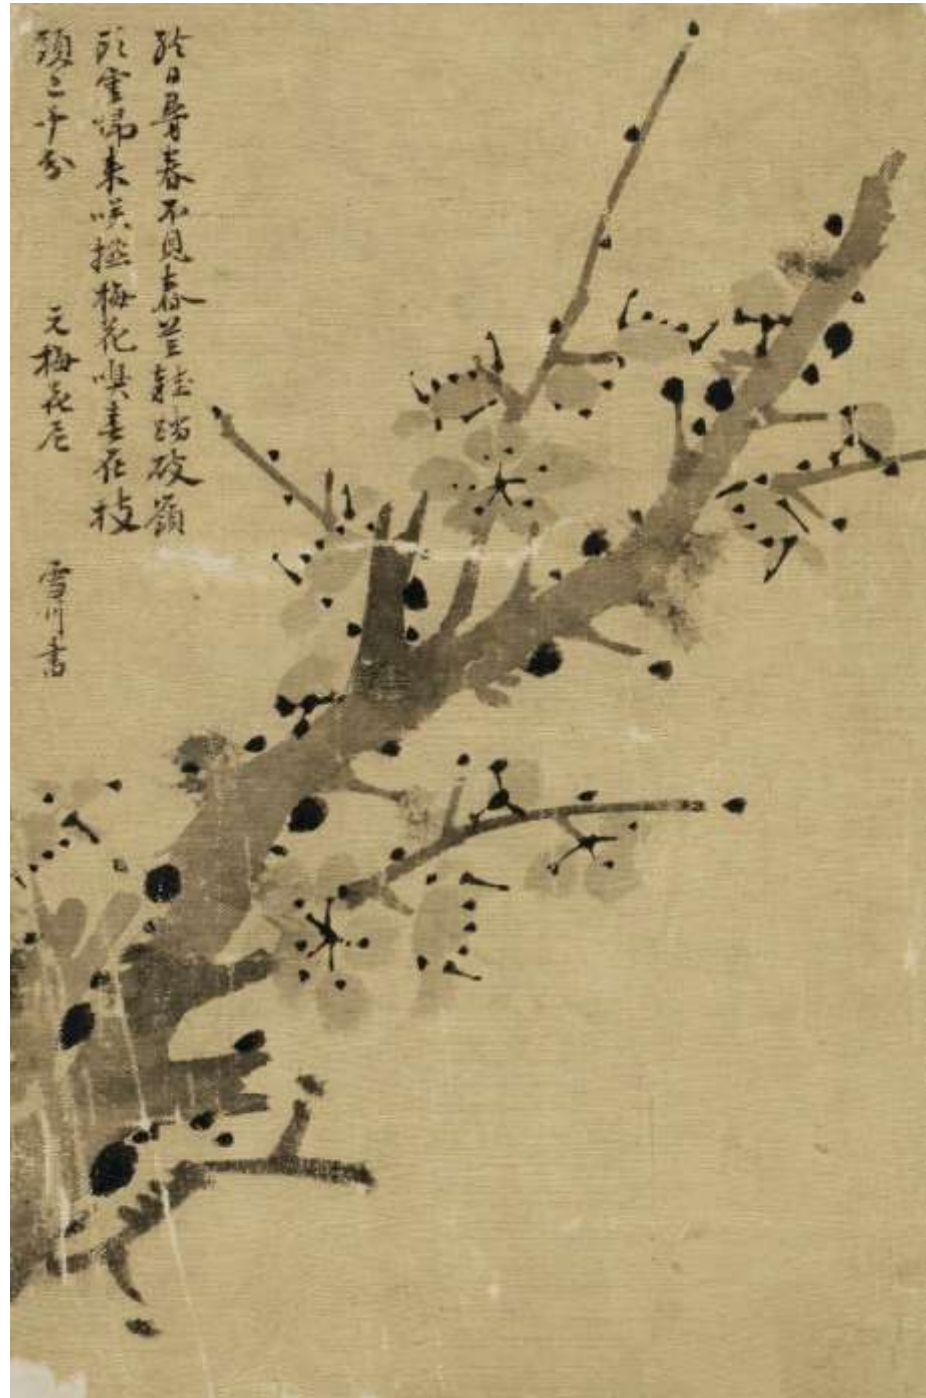 終日尋春不見春芒鞋踏破嶺
頭雲歸來咲撚梅花嗅春在枝
頭已十分
元梅花尼
雪川書